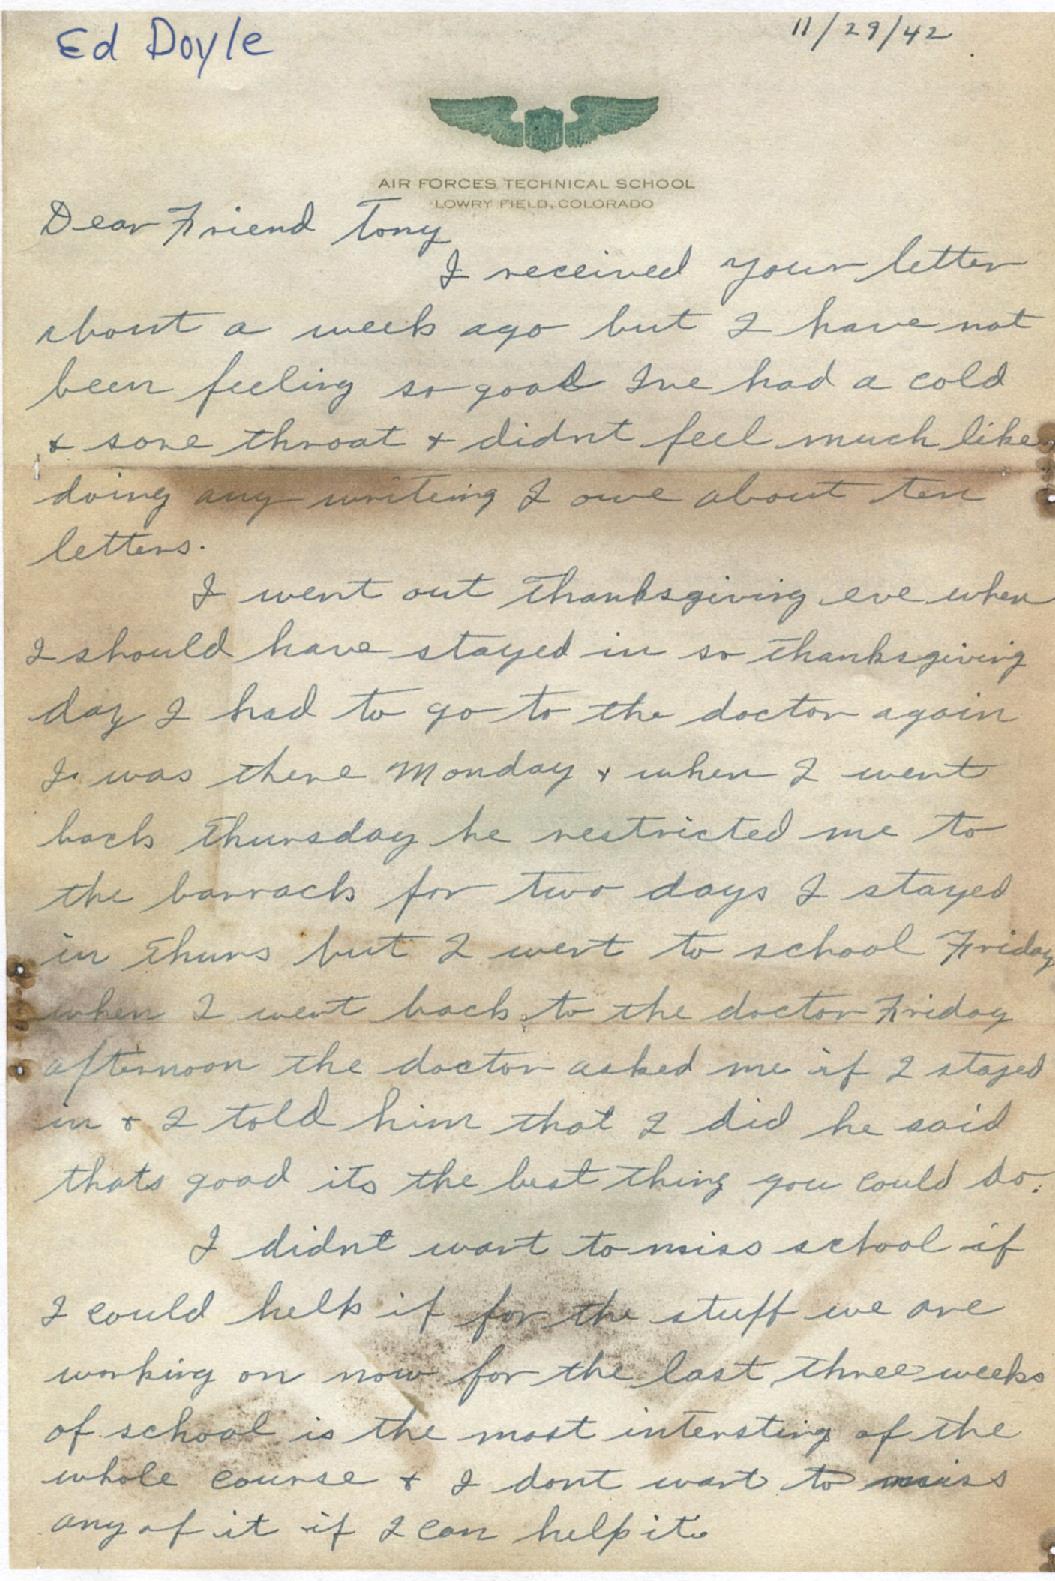 Ed Doyle
11/29/42
AIR FORCES TECHNICAL SCHOOL
LOWRY FIELD, COLORADO
Dear Friend Tony
I received your letter
about a week ago but I have not
been feeling so good Ive had a cold
& sore throat & didnt feel much like
doing any writeing I owe about ten
letters.
I went out Thanksgiving eve when
I should have stayed in so Thanksgiving
day I had to go to the doctor again
I was there Monday & when I went
back Thursday he restricted me to
the barracks for two days I stayed
in Thurs but I went to school Friday
when I went back to the doctor Friday
afternoon the doctor asked me if I stayed
in & I told him that I did he said
thats good its the best thing you could do.
I didnt want to miss school if
I could help it for the stuff we are
working on now for the last three weeks
of school is the most intersting of the
whole course & I dont want to miss
any of it if I can help it.